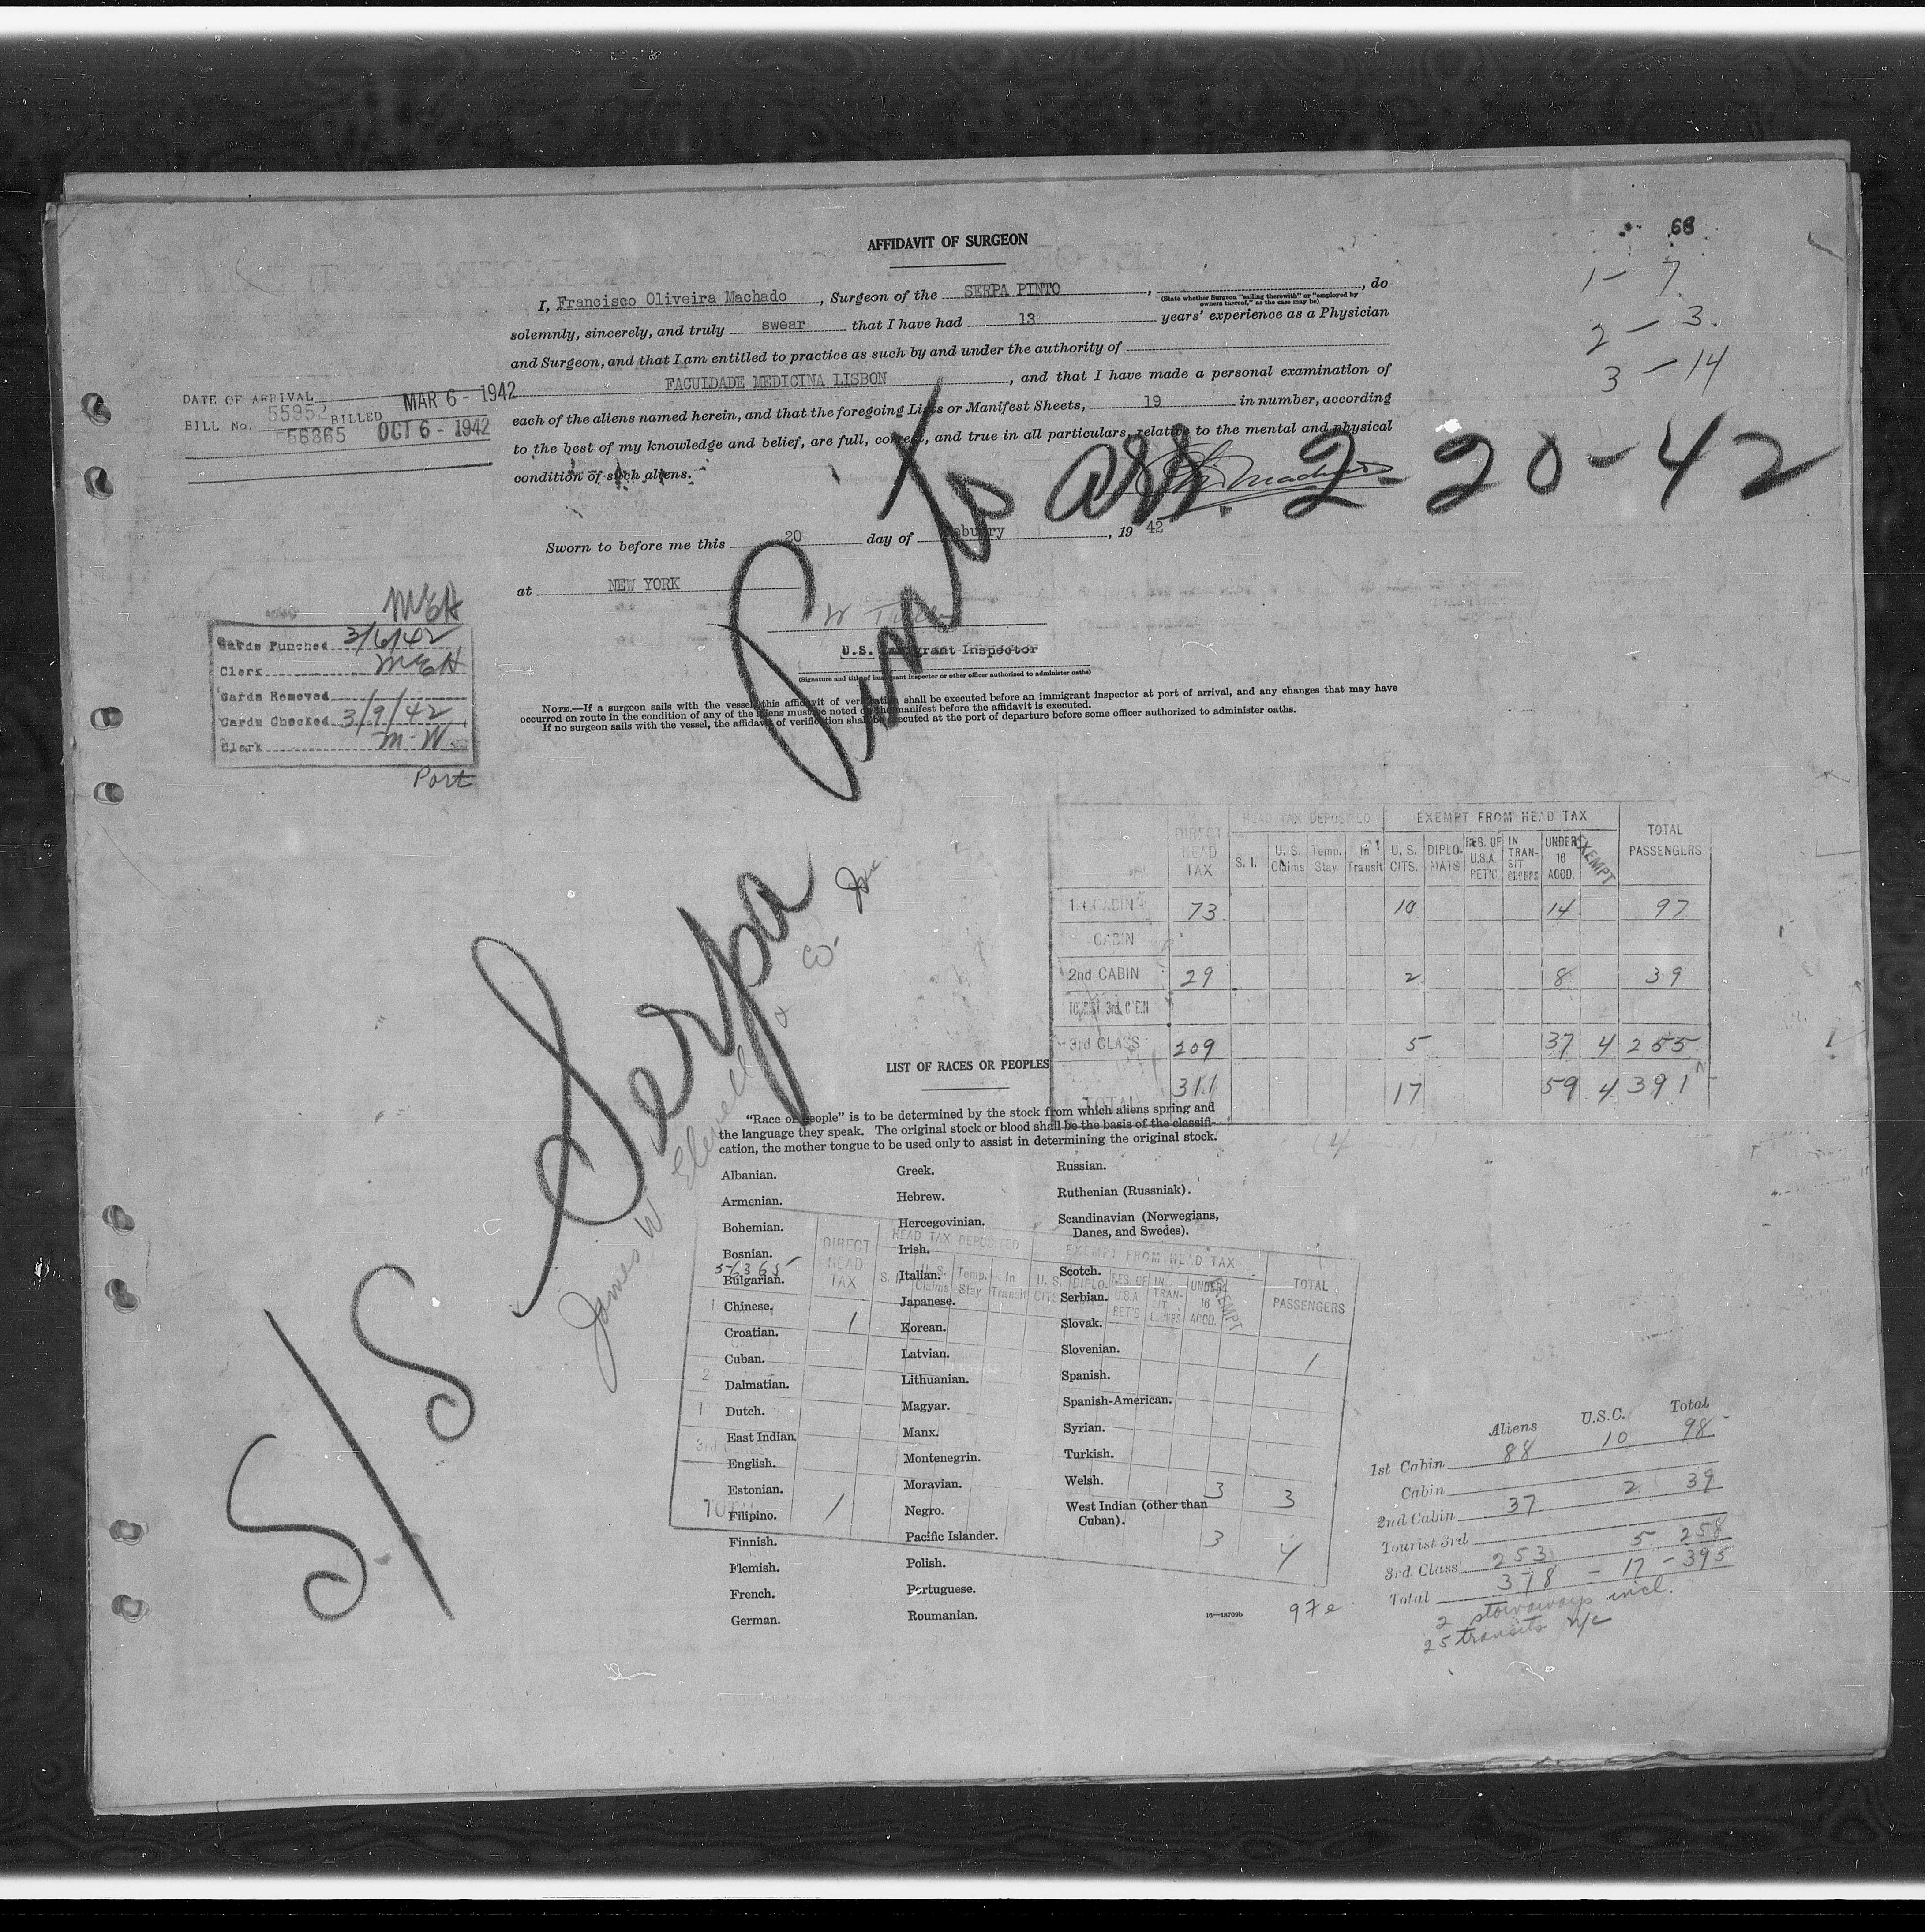 66
AFFIDAVIT OF SURGEON
1 - 7
2 - 3.
3 - 14
I, Francisco Oliveira Machado, Surgeon of the SERPA PINTO, , do
(State whether Surgeon "sailing therewith" or "employed by owners thereof," as the case may be)
solemnly, sincerely, and truly swear that I have had 13 years' experience as a Physician
and Surgeon, and that I am entitled to practice as such by and under the authority of
FACULDADE MEDICINA LISBON, and that I have made a personal examination of
each of the aliens named herein, and that the foregoing Lists or Manifest Sheets, 19 in number, according
to the best of my knowledge and belief, are full, correct, and true in all particulars, relative to the mental and physical
condition of such aliens.
DATE OF ARRIVAL MAR 6 - 1942
BILL No. 55952 BILLED
56865 OCT 6 - 1942
S/S Serpa Pinto arr. 2-20-42
Sworn to before me this 20 day of Febuary, 19 42
at NEW YORK
U.S. Immigrant Inspector
(Signature and title of immigrant inspector or other officer authorized to administer oaths)
MEH
Cards Punched 3/6/42
Clerk MEH
Cards Removed
Cards Checked 3/9/42
Clerk M.W.
Port
NOTE.—If a surgeon sails with the vessel, this affidavit of verification shall be executed before an immigrant inspector at port of arrival, and any changes that may have
occurred en route in the condition of any of the aliens must be noted on the manifest before the affidavit is executed.
If no surgeon sails with the vessel, the affidavit of verification shall be executed at the port of departure before some officer authorized to administer oaths.
James W. Elwell & Co. Inc.
DIRECT HEAD TAX HEAD TAX DEPOSITED EXEMPT FROM HEAD TAX TOTAL PASSENGERS
S. I. U. S. Claims Temp. Stay In Transit U. S. CITS. DIPLO-MATS RES. OF U.S.A. RET'G IN TRAN-SIT GROUPS UNDER 16 ACCD. EXEMPT
1st CABIN 73 10 14 97
CABIN
2nd CABIN 29 2 8 39
TOURIST 3rd CABIN
3rd CLASS 209 5 37 4 255
TOTAL 311 17 59 4 391
LIST OF RACES OR PEOPLES
"Race or people" is to be determined by the stock from which aliens spring and
the language they speak. The original stock or blood shall be the basis of the classifi-
cation, the mother tongue to be used only to assist in determining the original stock.
Albanian.
Armenian.
Bohemian.
Bosnian.
Bulgarian.
Chinese.
Croatian.
Cuban.
Dalmatian.
Dutch.
East Indian.
English.
Estonian.
Filipino.
Finnish.
Flemish.
French.
German.
Greek.
Hebrew.
Hercegovinian.
Irish.
Italian.
Japanese.
Korean.
Latvian.
Lithuanian.
Magyar.
Manx.
Montenegrin.
Moravian.
Negro.
Pacific Islander.
Polish.
Portuguese.
Roumanian.
Russian.
Ruthenian (Russniak).
Scandinavian (Norwegians,
Danes, and Swedes).
Scotch.
Serbian.
Slovak.
Slovenian.
Spanish.
Spanish-American.
Syrian.
Turkish.
Welsh.
West Indian (other than
Cuban).
16—18709b
56365
DIRECT HEAD TAX HEAD TAX DEPOSITED EXEMPT FROM HEAD TAX TOTAL PASSENGERS
S. I. U. S. Claims Temp. Stay In Transit U. S. CITS. DIPLO- RES. OF U.S.A. RET'G IN TRAN-SIT GROUPS UNDER 16 ACCD. EXEMPT
1 1 1
2
3rd 3 3
TOTAL 1 3 4
97e
Aliens U.S.C. Total
1st Cabin 88 10 98
Cabin
2nd Cabin 37 2 39
Tourist 3rd
3rd Class 253 5 258
Total 378 - 17 - 395
2 stowaways incl.
25 transits n/c